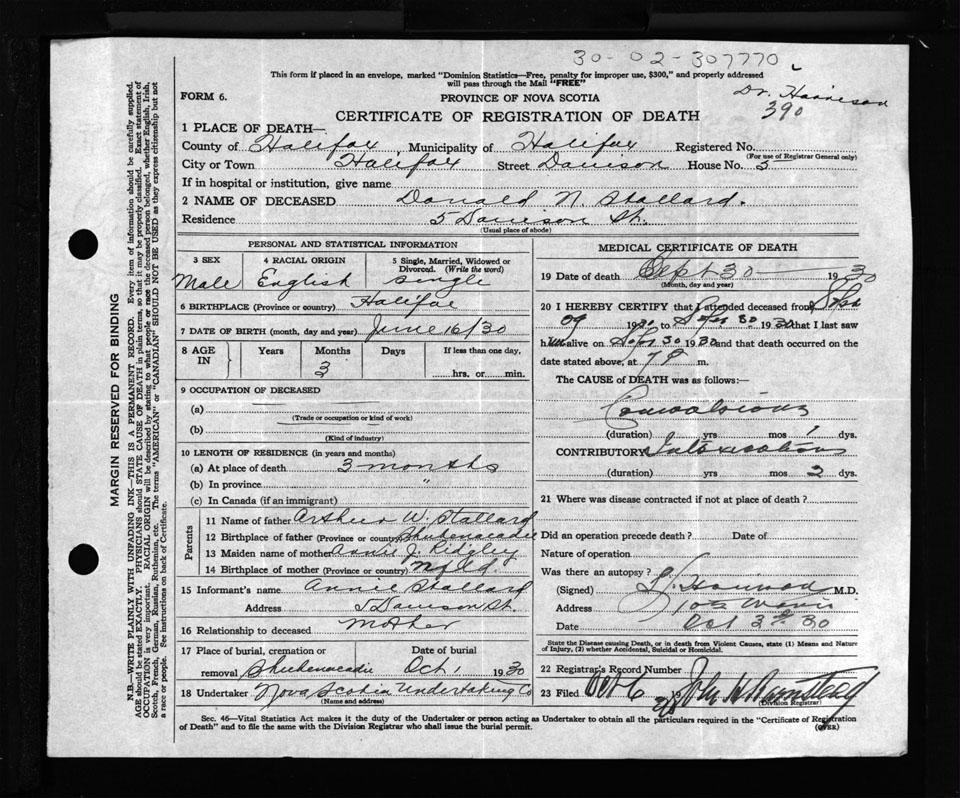 30-02-307770
This form if placed in an envelope, marked "Dominion Statistics—Free, penalty for improper use, $300," and properly addressed
will pass through the Mail "FREE"
FORM 6.
PROVINCE OF NOVA SCOTIA
Dr.
390
CERTIFICATE OF REGISTRATION OF DEATH
1 PLACE OF DEATH—
County of Halifax Municipality of Halifax Registered No.
(For use of Registrar General only)
City or Town Halifax Street Davison House No. 5
If in hospital or institution, give name
2 NAME OF DECEASED Donald N. Stallard.
Residence 5 Davison St.
(Usual place of abode)
PERSONAL AND STATISTICAL INFORMATION
3 SEX 4 RACIAL ORIGIN 5 Single, Married, Widowed or
Divorced. (Write the word)
Male English Single
6 BIRTHPLACE (Province or country) Halifax
7 DATE OF BIRTH (month, day and year) June 16/30
8 AGE IN Years Months Days If less than one day,
3 hrs. or min.
9 OCCUPATION OF DECEASED
(a)
(Trade or occupation or kind of work)
(b)
(Kind of industry)
10 LENGTH OF RESIDENCE (in years and months)
(a) At place of death 3 months
(b) In province "
(c) In Canada (if an immigrant)
Parents
11 Name of father Arthur W. Stallard
12 Birthplace of father (Province or country) Shubenacadie
13 Maiden name of mother Annie J. Ridgley
14 Birthplace of mother (Province or country) Nfld
15 Informant's name Annie Stallard
Address 5 Davison St.
16 Relationship to deceased Mother
17 Place of burial, cremation or Date of burial
removal Shubenacadie Oct 1 1930
18 Undertaker Nova Scotia Undertaking Co
(Name and address)
MEDICAL CERTIFICATE OF DEATH
19 Date of death Sept 30 1930
(Month, day and year)
20 I HEREBY CERTIFY that I attended deceased from Sept
29 1930 to Sept 30 1930 that I last saw
him alive on Sept 30 1930 and that death occurred on the
date stated above, at 7 P m.
The CAUSE of DEATH was as follows:—
Convulsions
(duration) yrs mos 1 dys.
CONTRIBUTORY Intoxication
(duration) yrs mos 2 dys.
21 Where was disease contracted if not at place of death?
Did an operation precede death? Date of
Nature of operation
Was there an autopsy?
(Signed) M.D.
Address
Date Oct 3rd 30
State the Disease causing Death, or in death from Violent Causes, state (1) Means and Nature
of Injury, (2) whether Accidental, Suicidal or Homicidal.
22 Registrar's Record Number
23 Filed Oct 6 19 John H. Barnstead
(Division Registrar)
Sec. 46—Vital Statistics Act makes it the duty of the Undertaker or person acting as Undertaker to obtain all the particulars required in the "Certificate of Registration
of Death" and to file the same with the Division Registrar who shall issue the burial permit.
(OVER)
MARGIN RESERVED FOR BINDING
N.B.—WRITE PLAINLY WITH UNFADING INK—THIS IS A PERMANENT RECORD. Every item of information should be carefully supplied.
AGE should be stated EXACTLY. PHYSICIANS should STATE CAUSE OF DEATH in plain terms, so that it may be properly classified. Exact statement of
OCCUPATION is very important. RACIAL ORIGIN will be described by stating to what people or race the deceased person belonged, whether English, Irish,
Scotch, French, German, Russian, Ruthenian, etc. The terms "AMERICAN" or "CANADIAN" SHOULD NOT BE USED as they express citizenship but not
a race or people. See instructions on back of Certificate.